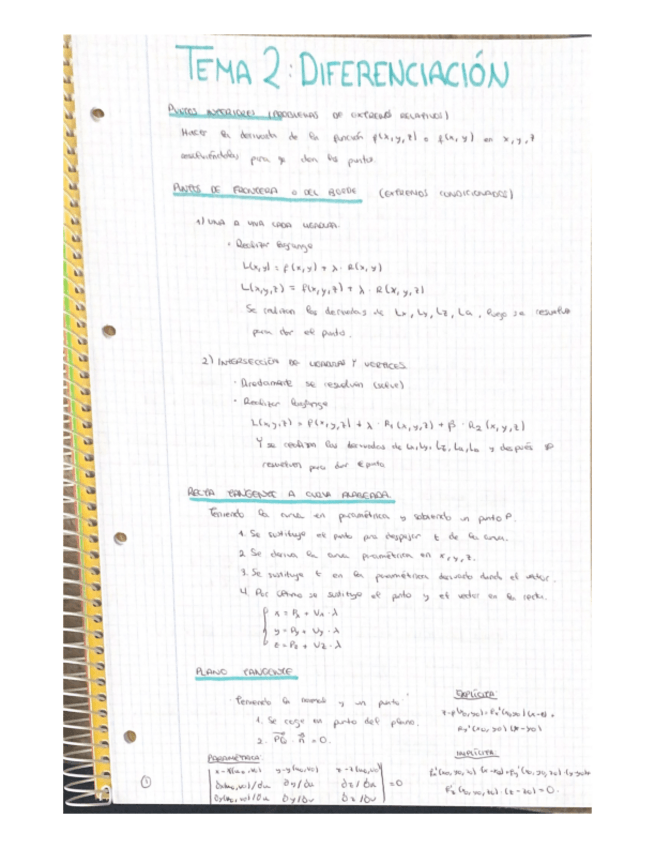 TEMA 2: DIFERENCIACIÓN
PUNTOS INTERIORES (PROBLEMAS DE EXTREMOS RELATIVOS)
Hacer la derivada de la función f(x,y,z) o f(x,y) en x,y,z
para se den los puntos.
PUNTOS DE FRONTERA O DEL BORDE (EXTREMOS CONDICIONADOS)
1) UNA A UNA CADA
• Realizar lagrange
L(x,y) = f(x,y) + λ · R(x,y)
L(x,y,z) = f(x,y,z) + λ · R(x,y,z)
Se realizan las derivadas de Lx, Ly, Lz, Lλ, luego se resuelve
para dar el punto.
2) INTERSECCIÓN DE Y VERTICES
• Directamente se resuelven (solve)
• Realizar lagrange
L(x,y,z) = f(x,y,z) + λ · R1(x,y,z) + β · R2(x,y,z)
Y se realizan las derivadas de Lx, Ly, Lz, Lλ, y después se
resuelven para dar el punto
RECTA TANGENTE A CURVA ALABEADA
Teniendo la curva en paramétrica y sabiendo un punto P.
1. Se sustituye el punto para despejar t de la curva.
2. Se deriva la curva paramétrica en x,y,z.
3. Se sustituye t en la paramétrica derivada dando el vector.
4. Por último se sustituye el punto y el vector en la recta.
x = Px + Vx · λ
y = Py + Vy · λ
z = Pz + Vz · λ
PLANO TANGENTE
Teniendo la normal y un punto
1. Se coge un punto del plano.
2. · n = 0.
EXPLÍCITA:
IMPLÍCITA:
PARAMÉTRICA:
= 0
1